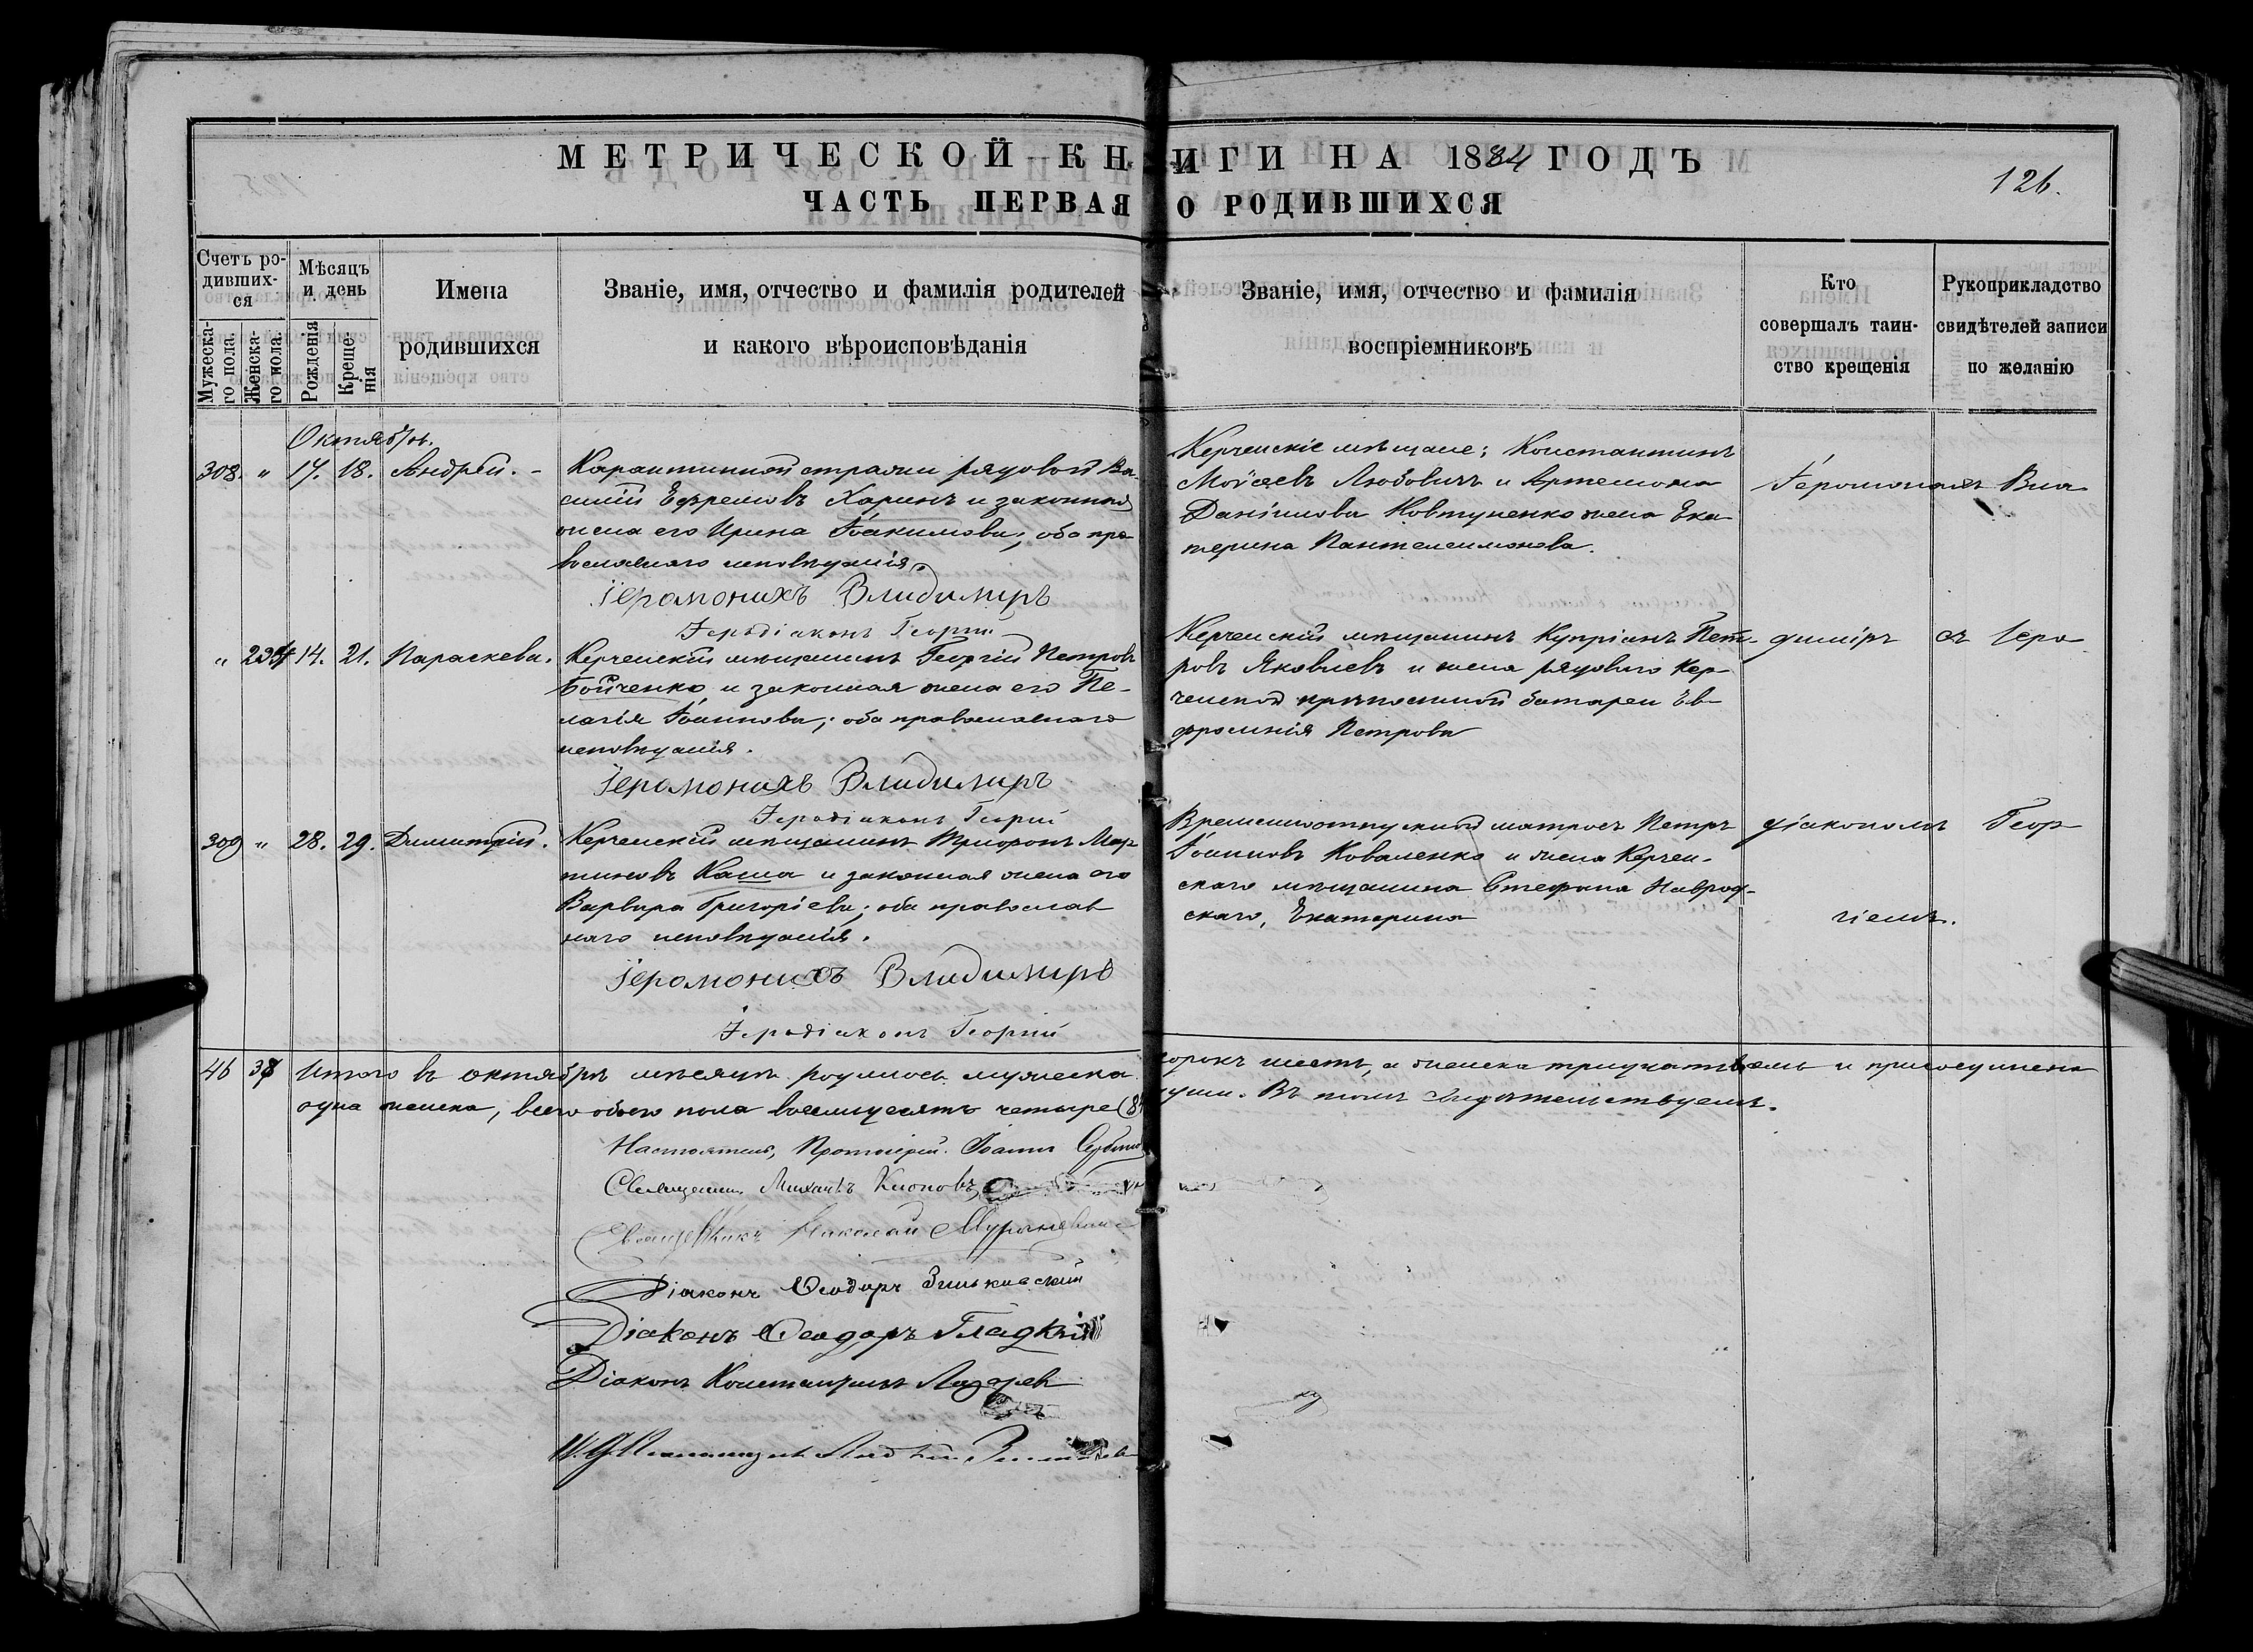 МЕТРИЧЕСКОЙ КНИГИ НА 1884 ГОДЪ
ЧАСТЬ ПЕРВАЯ О РОДИВШИХСЯ
126.
Счетъ родившихся
Мужескаго пола.
Женскаго пола.
Мѣсяцъ и день
Рожденія
Крещенія
Имена
родившихся
Званіе, имя, отчество и фамилія родителей
и какого вѣроисповѣданія
Званіе, имя, отчество и фамилія
воспріемниковъ
Кто
совершалъ таин-
ство крещенія
Рукоприкладство
свидѣтелей записи
по желанію
Октябрь.
308. " 17. 18. Андрей. -
Карантинной стражи рядовой Ва-
силій Ефремовъ Харинъ и законная
жена его Ирина Іоакимова; оба пра-
вославнаго исповѣданія.
Іеромонахъ Владимиръ
Іеродіаконъ Георгій
Керченскіе мѣщане: Константинъ
Моѵсеевъ Любовичъ и Артемона
Даніилова Ковтуненко жена Ека-
терина Пантелеимонова.
Іеромонахъ Вла-
" 14. 21. Параскева.
Керченскій мѣщанинъ Георгій Петровъ
Бойченко и законная жена его Пе-
лагія Іоаннова; оба православнаго
исповѣданія.
Іеромонахъ Владимиръ
Іеродіаконъ Георгій
Керченскій мѣщанинъ Купріанъ Пет-
ровъ Яковлевъ и жена рядового Кер-
ченской крѣпостной батареи Ев-
фросинія Петрова
димиръ съ Іеро-
309 " 28. 29. Димитрій.
Керченскій мѣщанинъ Трифонъ Мар-
тиновъ Каша и законная жена его
Варвара Григоріева; оба православ-
наго исповѣданія.
Іеромонахъ Владимиръ
Іеродіаконъ Георгій
Временноотпускной матросъ Петръ
Іоанновъ Коваленко и жена Керчен-
скаго мѣщанина Стефана Навроц-
скаго, Екатерина
діакономъ Геор-
гіемъ.
46 38 Итого въ октябрѣ мѣсяцѣ родилось мужеска сорокъ шесть, а женска тридцать и присоединена
одна женска, всего обоего пола восемьдесятъ четыре души. Въ томъ свидѣтельствуемъ.
Настоятель, Протоіерей Іоаннъ
Священникъ Михаилъ Клоповъ
Священникъ Николай
Діаконъ Ѳеодоръ Зиньковскій
Діаконъ Ѳеодоръ Гладкій
Діаконъ Константинъ Лазаревъ